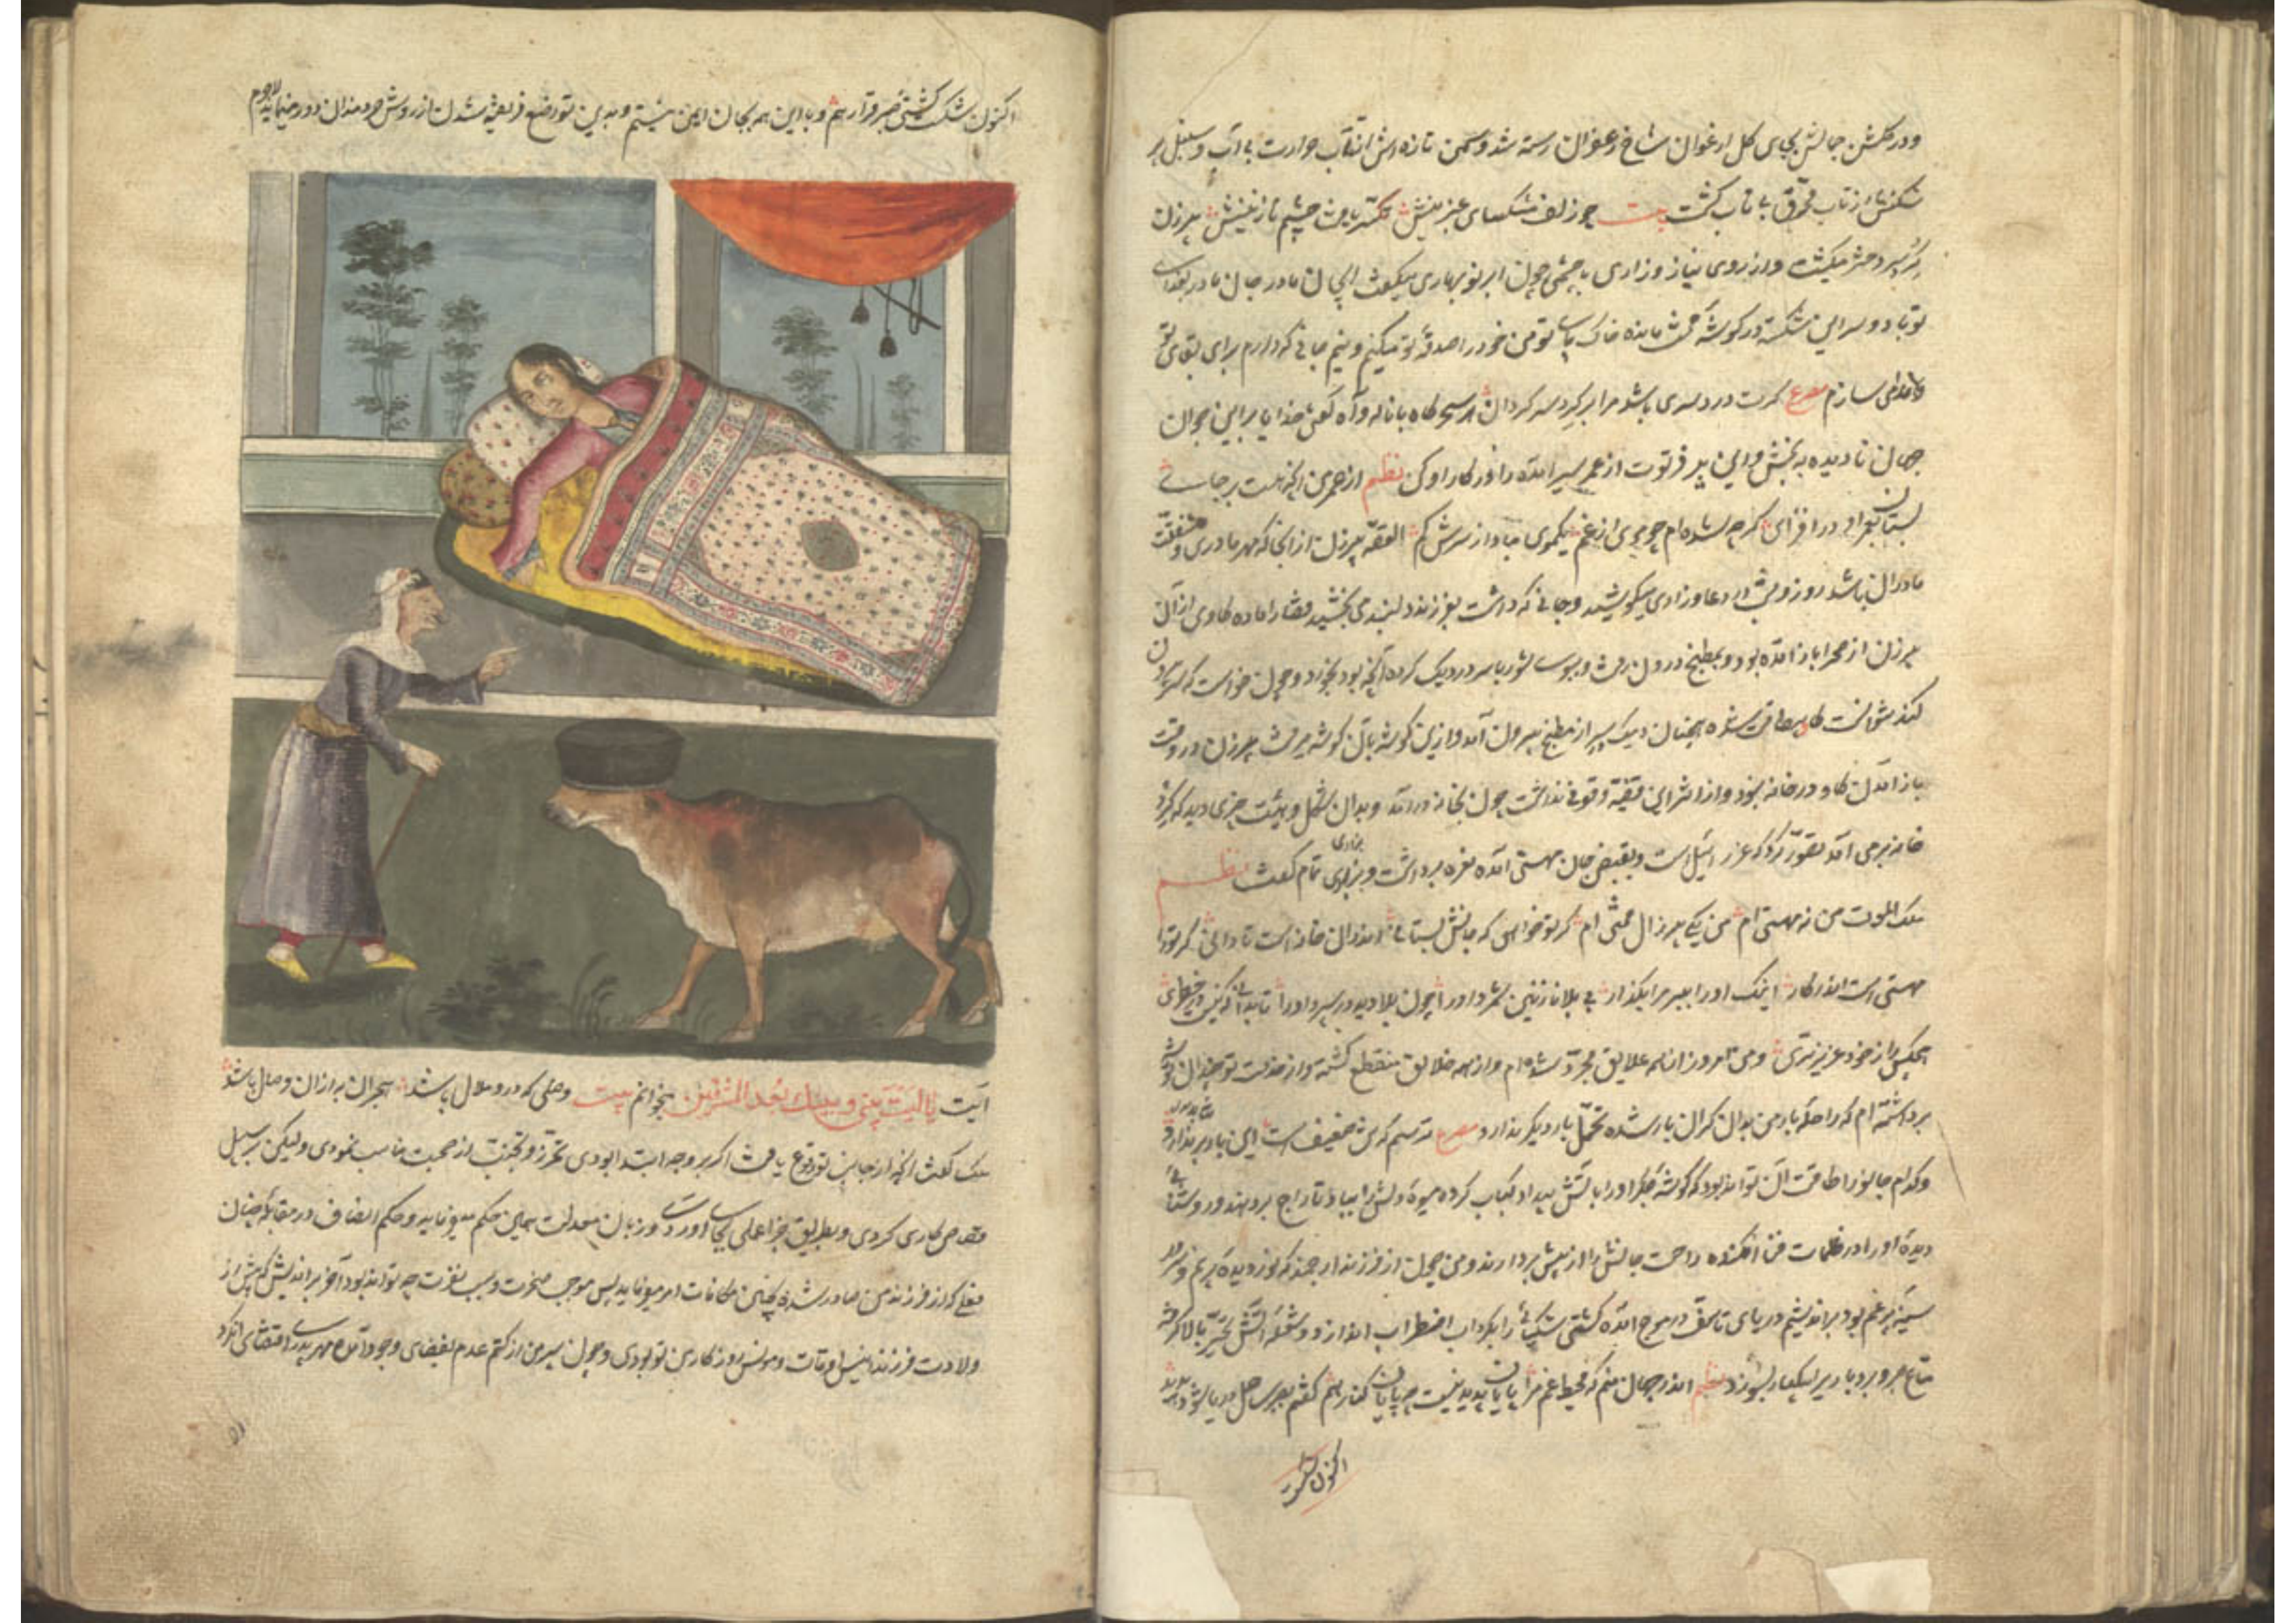 و در گلشن جمالش بجای گل ارغوان شاخ زعفران رسته شد و سمن تازه‌اش از تاب حرارت بی آب و سنبل پر
شکنش از تاب محرق بی تاب گشت بیت چو زلف
پیرزن
گرد سر دختر میگشت و از روی نیاز و زاری با چشمی چون ابر نوبهاری میگفت ای جان مادر جان مادر فدای
تو باد و سر این شکسته در کوشهٔ محنت مانده خاک پای تو من خود را صدقهٔ تو میکنم و نیم جانی که دارم برای بقای تو
فدا می سازم مصرع گرت درد سری باشد مرا بر گرد سر گردان هر سحرگاه با ناله و آه گفتی خدایا بر این جوان
جهان نادیده ببخش و این پیر فرتوت از عمر سیر آمده را در کار او کن نظم از عمر من آنچه هست بر جای
بستان بعمر او در افزای گرچه شده‌ام چو مویی از غم یکموی مباد از سرش کم القصه پیرزن از آنجا که مهر مادری و شفقت
مادران باشد روز و شب در دعا و زاری میکوشید و جانی که داشت بفرزند دلبند می بخشید قضا را ماده گاوی از آن
پیرزن از صحرا باز آمده بود و بمطبخ درون رفت و ببوی شوربا سر در دیک کرده آنچه بود بخورد و چون خواست که سر بیرون
کند نتوانست گاو بیطاقت شده همچنان دیک بر سر از مطبخ بیرون آمد و ازین کوشه بآن کوشه میرفت پیرزن در وقت
باز آمدن گاو در خانه نبود و از سر این قضیه وقوفی نداشت چون بخانه در آمد و بدان شکل و هیئت چیزی دید که گرد
خانه بر می آمد تصور کرد که عزرائیل است و بقبض جان مهستی آمده نعره برداشت و بزاری تمام گفت نظم
ملک الموت من نه مهستی ام من یکی پیر زال محنتی ام گر تو خواهی که جانش بستانی اندر آن خانه است تا دانی گر ترا
مهستی است اندر کار اینک او را ببر مرا بگذار بی بلا نازنین شمرد او را چون بلا دید در سپرد او را تا بدانی که نیست در خطری
هیچکس از خود عزیزتری و من امروز از همه علایق مجرد شده ام و از همه خلایق منقطع گشته و از خدمت تو چندان توشه
برداشته ام که راحلهٔ بار من بدان گران بار شده تحمل بار دیگر ندارد مصرع ترسم که تن ضعیف است این بار بر ندارد
و کدام جانور را طاقت آن تواند بود که گوشهٔ جگر او را بآتش بیداد کباب کرده میوهٔ دلش را بباد تاراج بر دهند و روشنائی
دیدهٔ او را در ظلمات فنا افکنده راحت جانش را از پیش بردارند و من چون از فرزند ارجمند که نور دیدهٔ پر نم و سرور
سینهٔ پر غم بود بر اندیشم دریای تاسف در موج آمده کشتی شکیبائی را بگرداب اضطراب اندازد و شعلهٔ آتش تحیر بالا گرفته
متاع صبر و بردباری بیکبار بسوزد نظم اندر جهان منم که محیط غم مرا پایان پدید نیست چه پایان کنار هم گفتم بصبر ساحل دریا شود پدید
اکنون شکست
اکنون شکست کشتی صبر و قرار هم و با این همه بجان ایمن نیستم و بدین تواضع فریفته شدن از روش خردمندان دور مینماید لاجرم
آیت یا لیت بینی و بینک بعد المشرقین میخوانم بیت وصلی که در و ملال باشد هجران به از آن وصال باشد
ملک گفت آنچه از جانب تو وقوع یافت اگر بر وجه ابتدا بودی تحرز و تجنب از صحبت مناسب نمودی ولیکن بر سبیل
قصاص کاری کردی و بطریق جزا عملی بجای آوردی و زبان معدلت همین حکم میفرماید و حکم انصاف در مقابلهٔ چنان
فعلی که از فرزند من صادر شده چنین مکافات امر میفرماید پس موجب ضجرت و سبب نفرت چه تواند بود آخر بر اندیش که پیش از
ولادت فرزند انیس اوقات و مونس روزگار من تو بودی و چون پسر من از کتم عدم بفضای وجود آمد مهر پدری اقتضای آن کرد